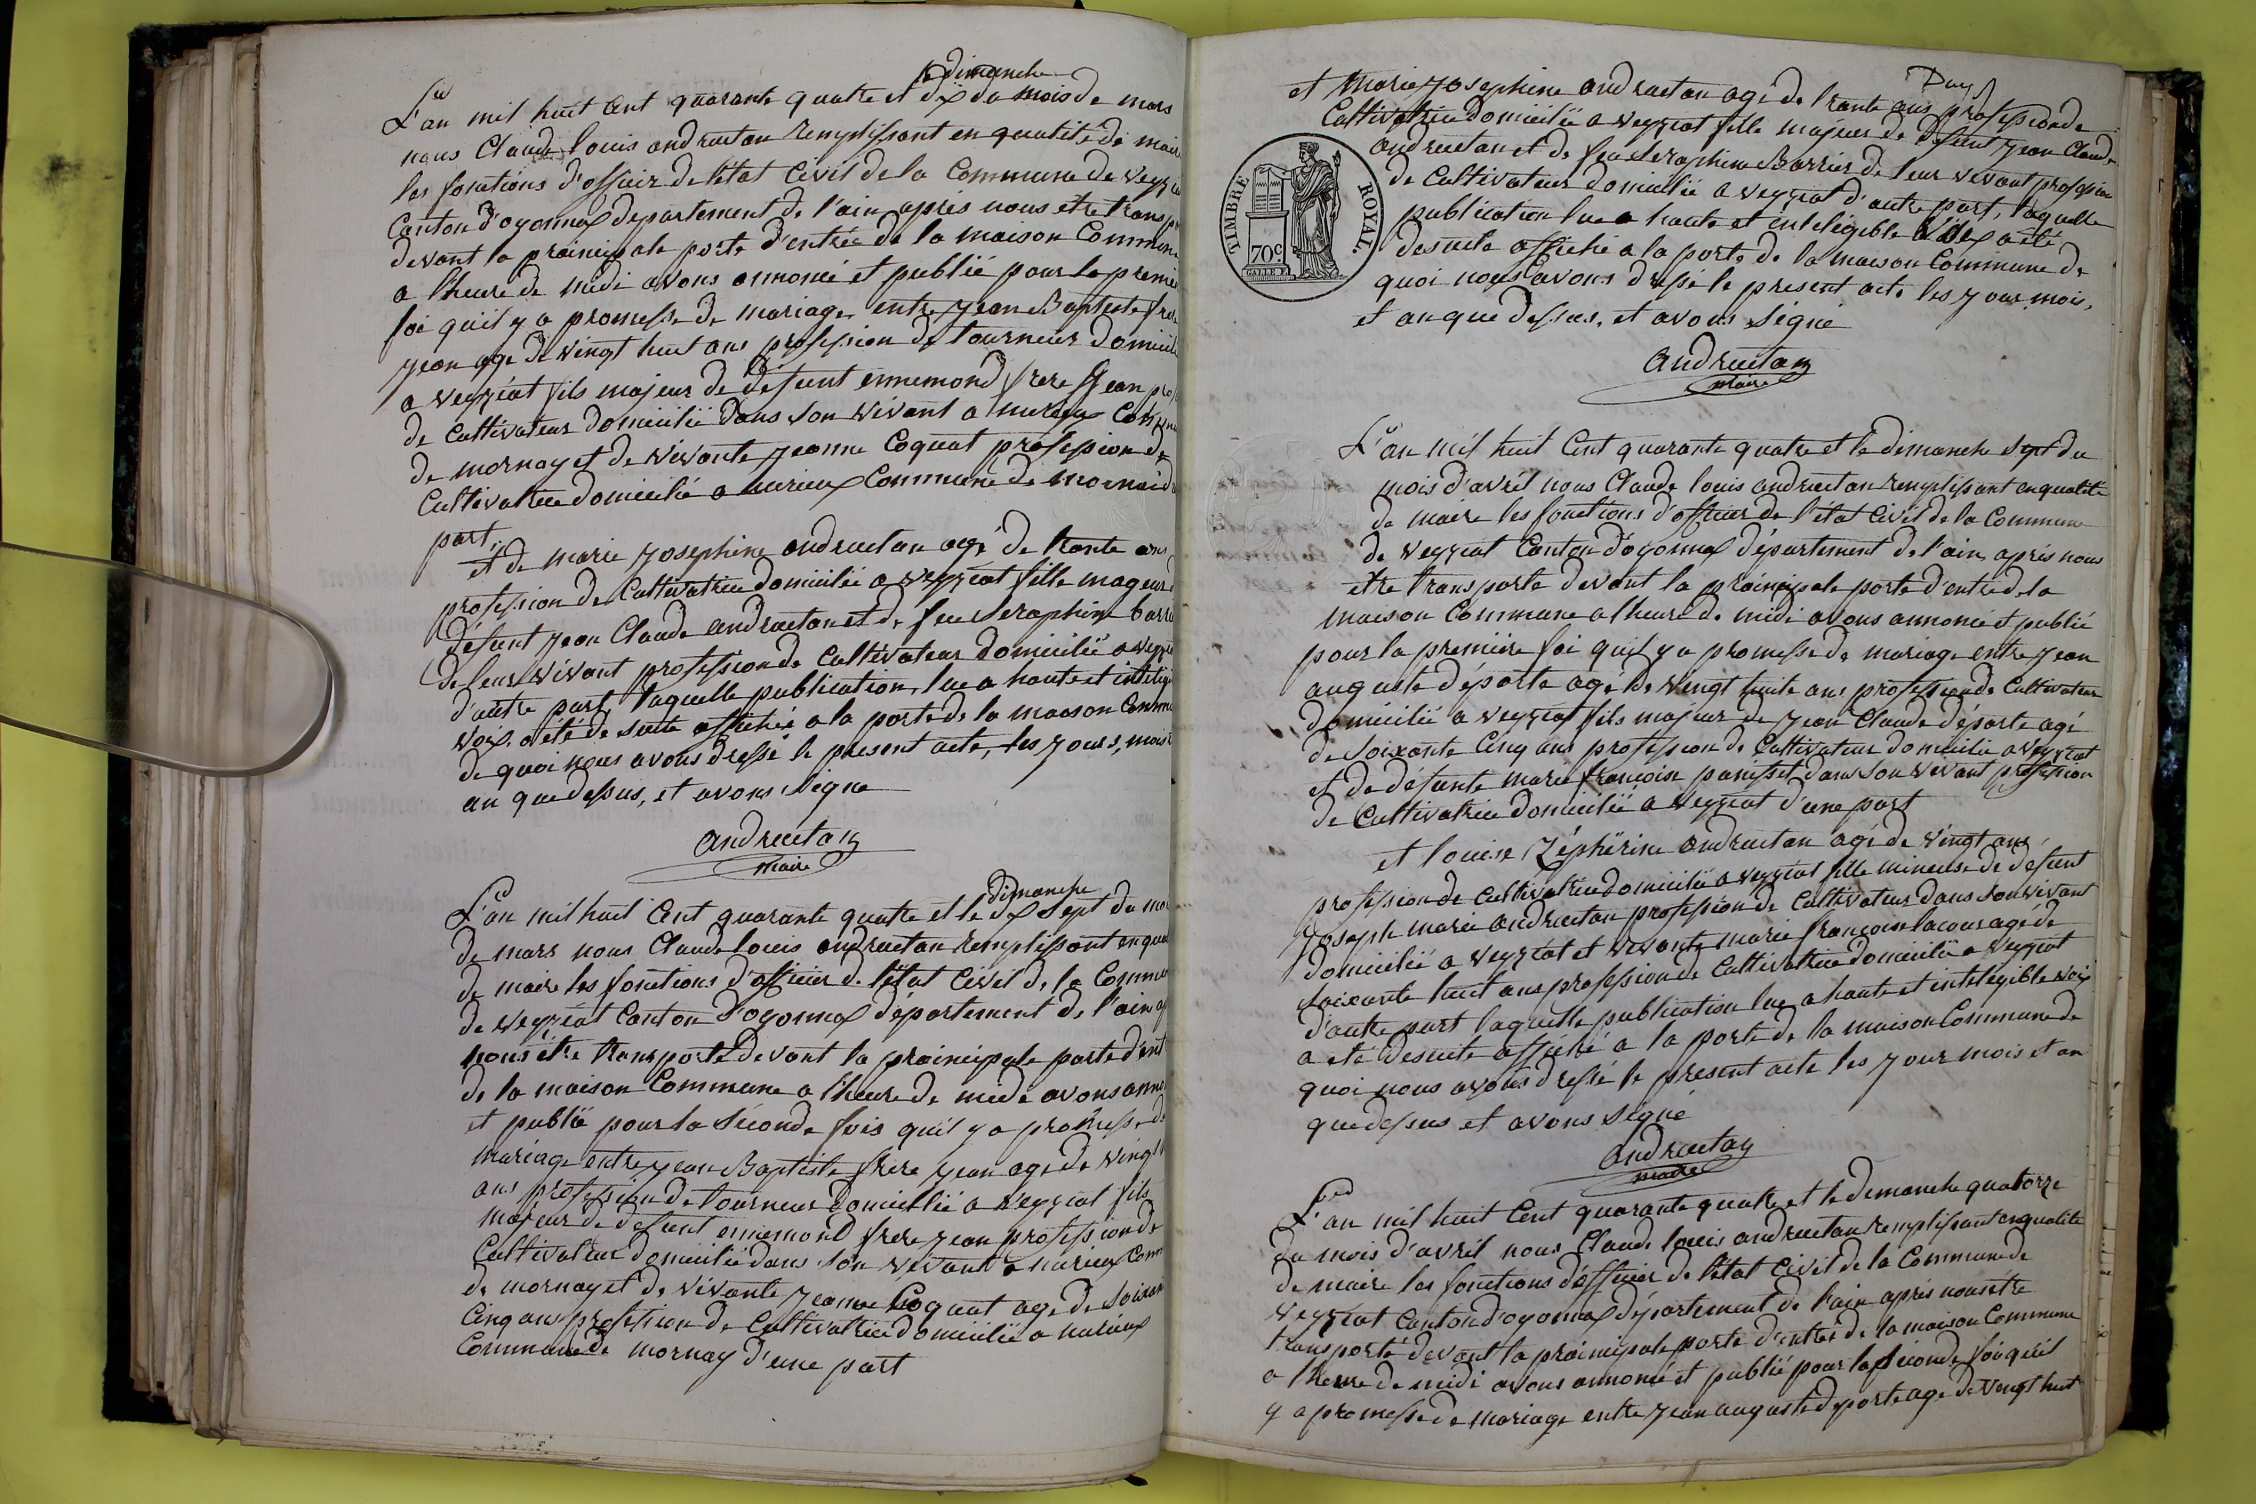 le dimanche
L'an mil huit cent quarante quatre et dix du mois de mars
nous Claude louis andruetan remplissant en qualité de maire
les fonctions d'officier de l'état Civil de la Commune de Veyziat
Canton d'oyonnax departement de l'ain après nous etre transp
devant la prainicipale porte d'entrée de la maison Commune
a l'heure de midi avons annoncé et publié pour la premie
foi qu'il y a promesse de mariage entre jean Baptiste frere
jean age de vingt huit ans profession de tourneur domicili
a veyziat fils majeur de défeunt ennemond frere jean prof
de Cultivateur domicilié dans son vivant a nurieux Commune
de mornay et de vivante jeanne Coquat profession de
Cultivatrice domicilié a nurieux Commune de mornai d
part.
et de marie josephine andruetan agé de trante ans
profession de Cultivatrice domicilié a veyziat fille mageure d
défeunt jean Claude andruetan et de feu seraphine barri
de leur vivant profession de Cultivateur domicilié a veyzia
d'autre part, laquelle publication, lue a haute et inteligi
voix a été de suite affichée a la porte de la maison Commu
de quoi nous avons dressé le present acte, les jours, mois e
an que dessus, et avons signe
andruetan
maire
dimanche
L'an mil huit cent quarante quatre et le dix sept du moi
de mars nous Claude louis andruetan remplissant en qual
de maire les fonctions d'officier de l'état Civil de la Commun
de veyziat Canton d'oyonnax département de l'ain ap
nous être transporté devant la prainicipale porte d'ent
de la maison Commune a l'heure de midi avons anno
et publié pour la séconde fois qu'il y a promesse de
mariage entre jean Baptiste frere jean age de vingt h
ans profession de tourneur domicilié a veyziat fils
majeur de defunt ennemond frere jean profession de
Cultivateur domicilié dans son vivant a nurieux Comm
de mornay et de vivante jeanne Coquat age de soixan
Cinq ans profession de Cultivatrice domicilié a nurieux
Commune de mornay d'une part
et Marie josephine andruetan agé de trante ans profession de
Cultivatrice domicilié a veyziat fille majeur de défeunt jean Claude
andruetan et de feu seraphine Barrier de leur vivant profession
de Cultivateur domicilié a veyziat d'autre part, laquelle
publication lue a haute et inteligible voix a été
desuite affiché a la porte de la maison Commune de
quoi nous avons dressé le present acte les jour mois,
et an que dessus, et avons signé
TIMBRE ROYAL
70c
andruetan
maire
L'an mil huit Cent quarante quatre et le dimanche sept du
mois d'avril nous Claude louis andruetan remplissant en qualité
de maire les fonctions d'officier de l'état Civil de la Commune
de veyziat Canton d'oyonnax département de l'ain, après nous
etre transporte devant la prainicipale porte d'entré de la
maison Commune a lheure de midi avons annoncé et publié
pour la premiére foi qu'il y a promesse de mariage entre jean
auguste déporte agé de vingt huite ans profession de Cultivateur
domicilié a veyziat fils majeur de jean Claude déporte agé
de soixante Cinq ans profession de Cultivateur domicilié a veyziat
et de défunte marie françoise panisset dans son vivant profession
de Cultivatrice domicilié a veyziat d'une part
et louise Zéphirine andruetan agé de vingt ans
profession de cultivatrice domicilié a veyziat fille mineuse de defunt
joseph marie andruetan profession de Cultivateur dans son vivant
domicilié a veyziat et vivante marie françoise lacour agé de
soixante huit ans profession de Cultivatrice domicilié a veyziat
d'autre part laquelle publication lue a haute et inteligible voix
a été desuite affiché a la porte de la maison Commune de
quoi nous avons dressé le present acte les jour mois et an
que dessus et avons signé
andruetan
maire
L'an mil huit Cent quarante quatre et le dimanche quatorze
du mois d'avril nous Claude louis andruetan remplissant en qualité
de maire les fonctions d'officier de l'état Civil de la Commune de
veyziat Canton d'oyonnax département de l'ain après nous être
transporté devant la prainicipale porte d'entrée de la maison Commune
a l'heure de midi avons annoncé et publié pour la séconde foi qu'il
y a promesse de mariage entre jean auguste déporte age de vingt huit